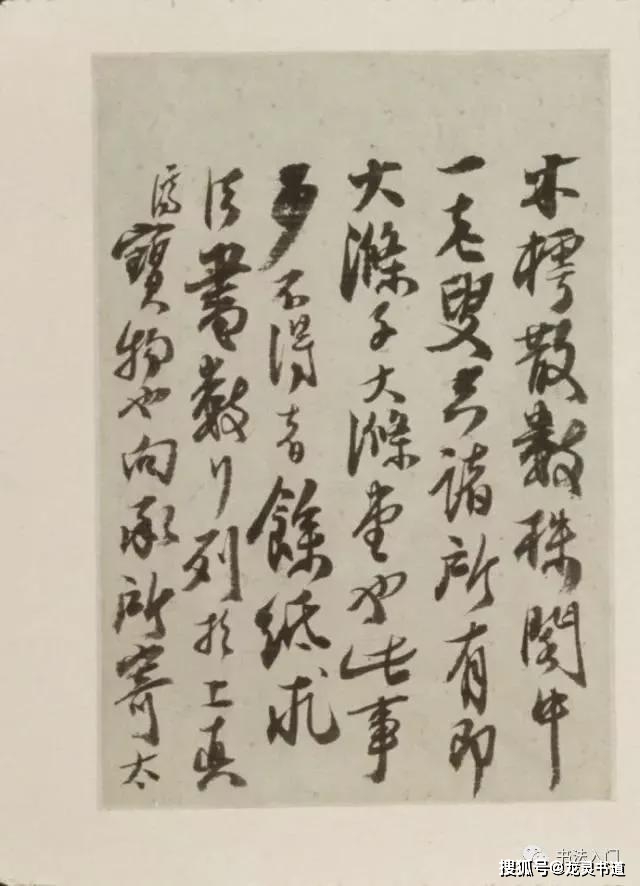 木樗散數株閣中
一老叟空諸所有即
大滌子大滌堂也此事
少不得者餘紙求
法書數行列於上真
濟寶物也向承所寄太
书法入门
搜狐号@龙灵书道